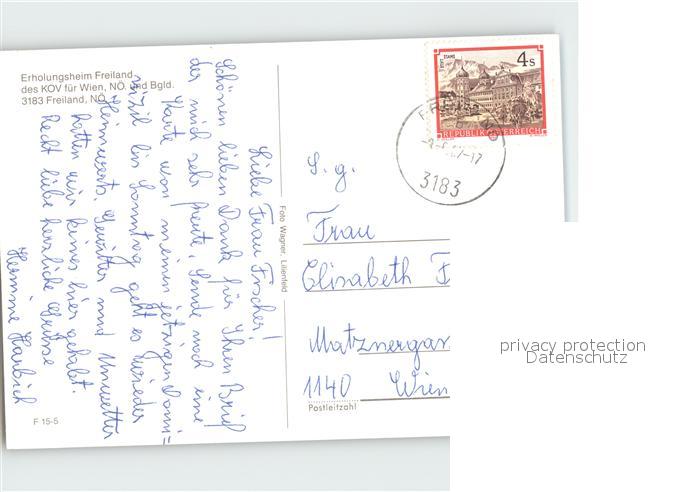 Erholungsheim Freiland
des KOV für Wien, NÖ. und Bgld.
3183 Freiland, NÖ.
Liebe Frau Fischer!
Schönen lieben Dank für Ihren Brief
der mich sehr freute. Sende noch eine
Karte von meinen jetzigen Domi=
zil bis Sonntag geht es wieder
Heimwerts. Gewitter und Unwetter
hatten wir keines hier gehabt.
Recht liebe herzliche Grüsse
Hermine
F 15-5
Foto Wagner, Lilienfeld
STIFT STAMS
4s
REPUBLIK ÖSTERREICH
FREILAND
3183
S. g.
Frau
Elisabeth F
Matznergas
1140 Wien
Postleitzahl
privacy protection
Datenschutz